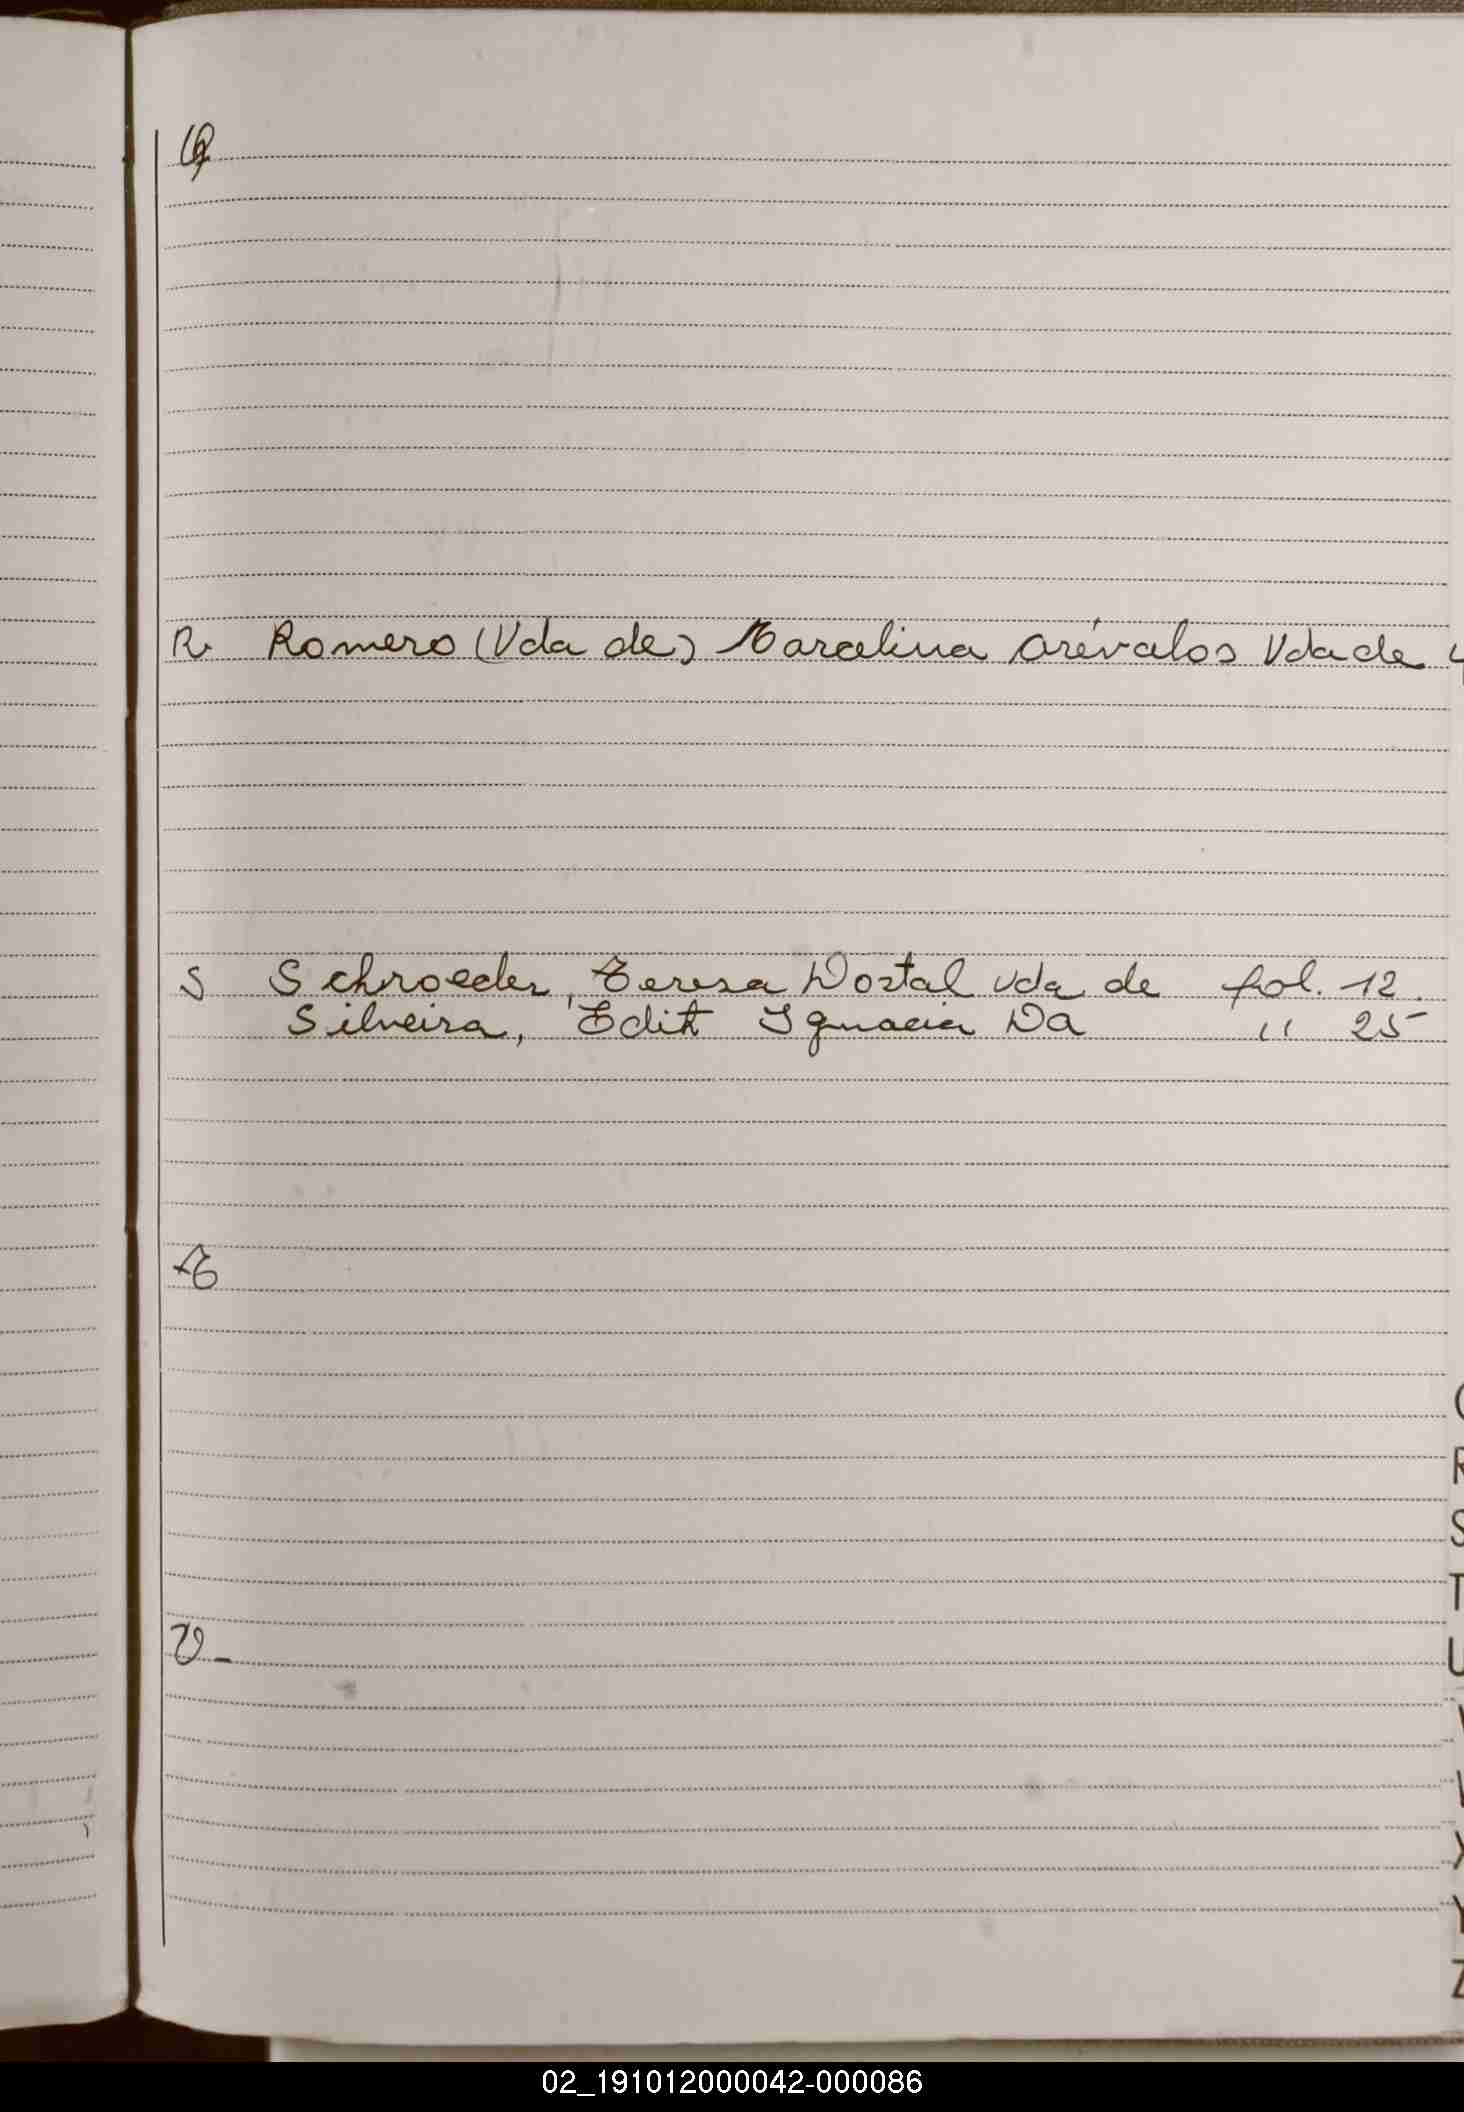 Q
R. Romero (Vda de) Marcelina Arévalos Vda de 4
S Schroeder, Teresa Dostal vda de fol. 12.
Silveira, Edit Ignacia Da " 25
T
U -
R
S
T
U
V
X
Y
Z
02_191012000042-000086